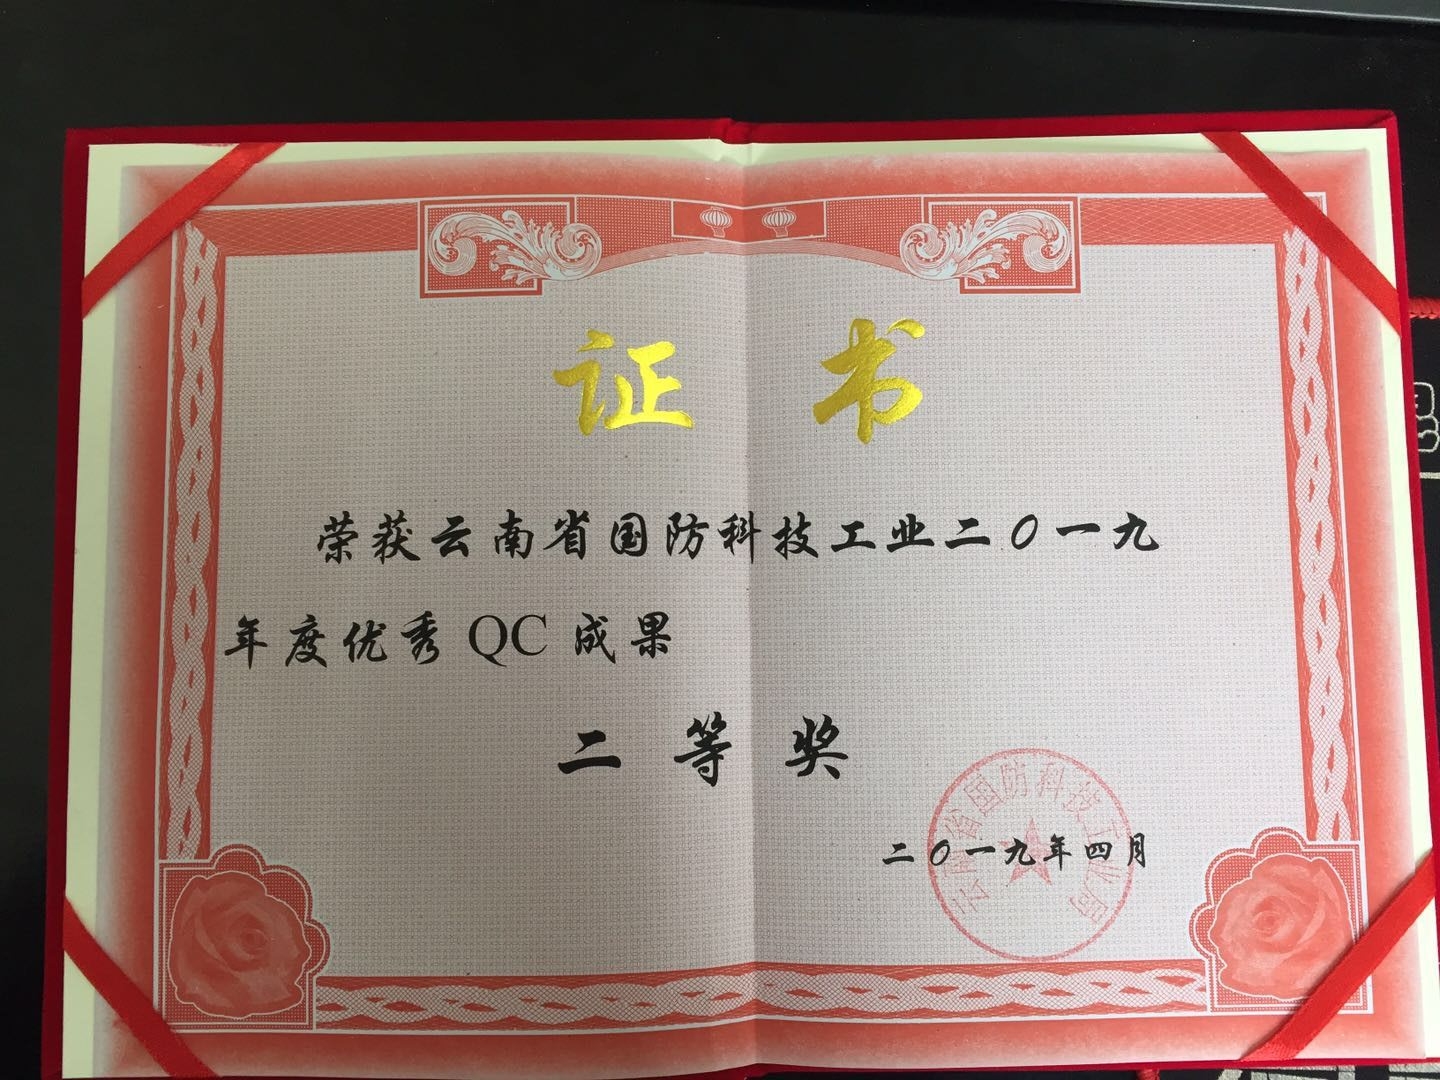 证书
荣获云南省国防科技工业二〇一九
年度优秀 QC 成果
二等奖
云南省国防科技工业局
二〇一九年四月